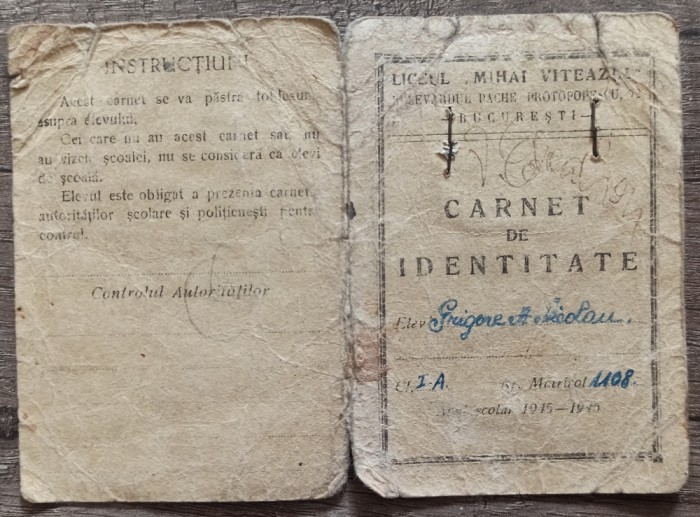 INSTRUCȚIUNI
Acest carnet se va păstra totdeauna
asupra elevului.
Cei care nu au acest carnet sau nu
au vizele școalei, nu se consideră ca elevi
de școală.
Elevul este obligat a prezenta carnet
autorităților școlare și polițienești pentru
control.
Controlul Autorităților
LICEUL „MIHAI VITEAZUL"
BULEVARDUL PACHE PROTOPOPESCU,
BUCUREȘTI
CARNET
DE
IDENTITATE
Elev Grigore A. Nicolau.
Cl. I-A. Nr. Matricol 1108.
Anul școlar 1945-1946